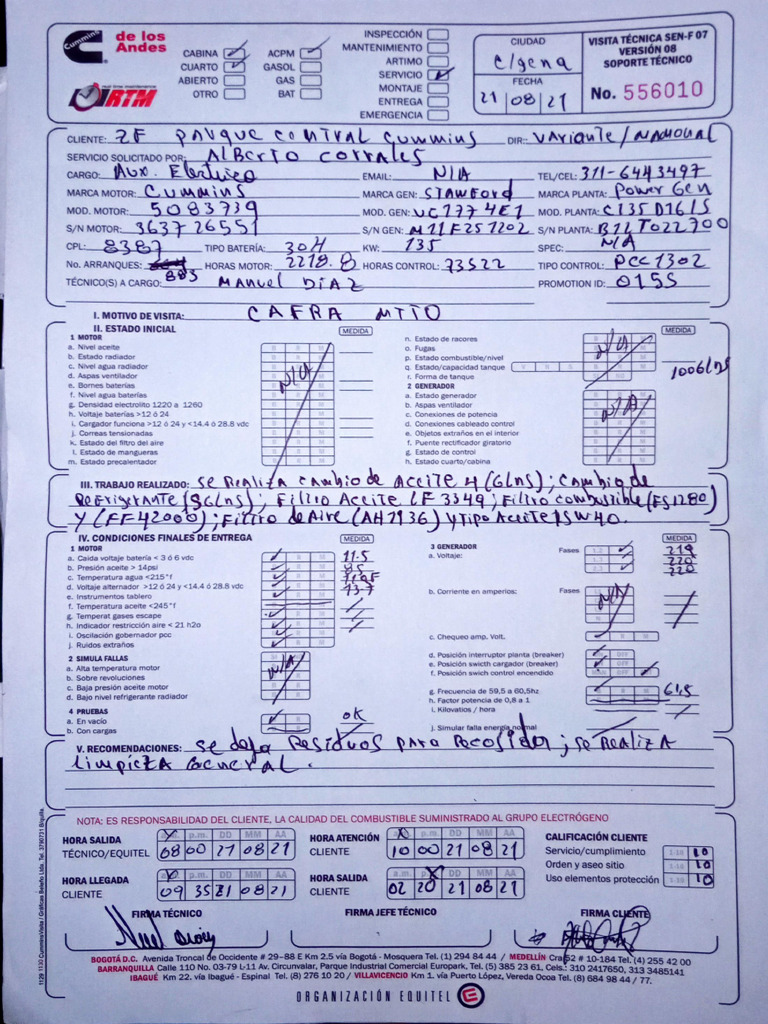 Cummins de los Andes
real time maintenance RTM
CABINA
CUARTO
ABIERTO
OTRO
ACPM
GASOL
GAS
BAT
INSPECCIÓN
MANTENIMIENTO
ARTIMO
SERVICIO
MONTAJE
ENTREGA
EMERGENCIA
CIUDAD
C/gena
FECHA
21 | 08 | 21
VISITA TÉCNICA SEN-F 07
VERSIÓN 08
SOPORTE TÉCNICO
No. 556010
CLIENTE: ZF Parque Central Cummins DIR: Variante/Mamonal
SERVICIO SOLICITADO POR: Alberto Corrales
CARGO: Aux. Electrico EMAIL: N/A TEL/CEL: 311-6443497
MARCA MOTOR: Cummins MARCA GEN: Stamford MARCA PLANTA: Power Gen
MOD. MOTOR: 5083739 MOD. GEN: UCI774E1 MOD. PLANTA: C135D16IS
S/N MOTOR: 363726551 S/N GEN: M11F251202 S/N PLANTA: B12T022700
CPL: 8387 TIPO BATERÍA: 30H KW: 135 SPEC: N/A
No. ARRANQUES: 883 HORAS MOTOR: 2218.8 HORAS CONTROL: 73522 TIPO CONTROL: PCC1302
TÉCNICO(S) A CARGO: Manuel Diaz PROMOTION ID: 0155
I. MOTIVO DE VISITA: CAFRA MTTO
II. ESTADO INICIAL MEDIDA
1 MOTOR
a. Nivel aceite
b. Estado radiador
c. Nivel agua radiador
d. Aspas ventilador
e. Bornes baterías
f. Nivel agua baterías
g. Densidad electrolito 1220 a 1260
h. Voltaje baterías >12 ó 24
i. Cargador funciona >12 ó 24 y <14.4 ó 28.8 vdc
j. Correas tensionadas
k. Estado del filtro del aire
l. Estado de mangueras
m. Estado precalentador
N/A
n. Estado de racores
o. Fugas
p. Estado combustible/nivel
q. Estado/capacidad tanque
r. Forma de tanque
N/A
MEDIDA
100Glns
2 GENERADOR
a. Estado generador
b. Aspas ventilador
c. Conexiones de potencia
d. Conexiones cableado control
e. Objetos extraños en el interior
f. Puente rectificador giratorio
g. Estado de control
h. Estado cuarto/cabina
N/A
III. TRABAJO REALIZADO: Se Realiza cambio de Aceite 4 (Glns); Cambio de
Refrigerante (3Glns); Filtro Aceite LF 3349; Filtro combustible (FS1280)
Y (FF42000); Filtro de Aire (AH1936) y Tipo Aceite 15W40.
IV. CONDICIONES FINALES DE ENTREGA MEDIDA
1 MOTOR
a. Caida voltaje batería < 3 ó 6 vdc 11.5
b. Presión aceite > 14psi
c. Temperatura agua <215°f
d. Voltaje alternador >12 ó 24 y <14.4 ó 28.8 vdc 13.7
e. Instrumentos tablero
f. Temperatura aceite <245°f
g. Temperat gases escape
h. Indicador restricción aire < 21 h2o
i. Oscilación gobernador pcc
j. Ruidos extraños
2 SIMULA FALLAS
a. Alta temperatura motor
b. Sobre revoluciones
c. Baja presión aceite motor
d. Bajo nivel refrigerante radiador
N/A
4 PRUEBAS
a. En vacío OK
b. Con cargas
3 GENERADOR MEDIDA
a. Voltaje: Fases 219
220
220
b. Corriente en amperios: Fases N/A
c. Chequeo amp. Volt.
d. Posición interruptor planta (breaker)
e. Posición swicth cargador (breaker)
f. Posición swich control encendido
g. Frecuencia de 59,5 a 60,5hz 61,5
h. Factor potencia de 0,8 a 1
i. Kilovatios / hora
j. Simular falla energía normal
V. RECOMENDACIONES: Se deja Residuos para Recojider; se realiza
limpieza General.
NOTA: ES RESPONSABILIDAD DEL CLIENTE, LA CALIDAD DEL COMBUSTIBLE SUMINISTRADO AL GRUPO ELECTRÓGENO
HORA SALIDA TÉCNICO/EQUITEL a.m. p.m. DD MM AA
08 00 21 08 21
HORA ATENCIÓN CLIENTE a.m. p.m. DD MM AA
10 00 21 08 21
HORA LLEGADA CLIENTE a.m. p.m. DD MM AA
09 35 21 08 21
HORA SALIDA CLIENTE a.m. p.m. DD MM AA
02 20 21 08 21
CALIFICACIÓN CLIENTE
Servicio/cumplimiento 1-10 10
Orden y aseo sitio 1-10 10
Uso elementos protección 1-10 10
FIRMA TÉCNICO
FIRMA JEFE TÉCNICO
FIRMA CLIENTE
BOGOTÁ D.C. Avenida Troncal de Occidente # 29-88 E Km 2.5 vía Bogotá - Mosquera Tel. (1) 294 84 44 / MEDELLÍN Cra 52 # 10-184 Tel. (4) 255 42 00
BARRANQUILLA Calle 110 No. 03-79 L-11 Av. Circunvalar, Parque Industrial Comercial Europark, Tel. (5) 385 23 61, Cels.: 310 2417650, 313 3485141
IBAGUÉ Km 22. vía Ibagué - Espinal Tel. (8) 276 10 20 / VILLAVICENCIO Km 1. vía Puerto López, Vereda Ocoa Tel. (8) 684 98 44 / 77.
ORGANIZACIÓN EQUITEL